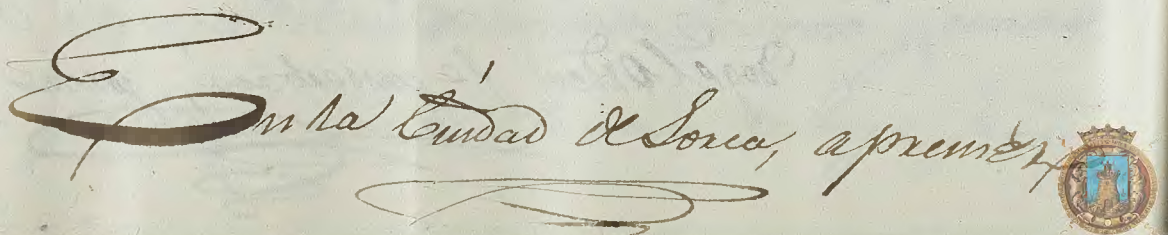 En la Ciudad de Lorca, a primero